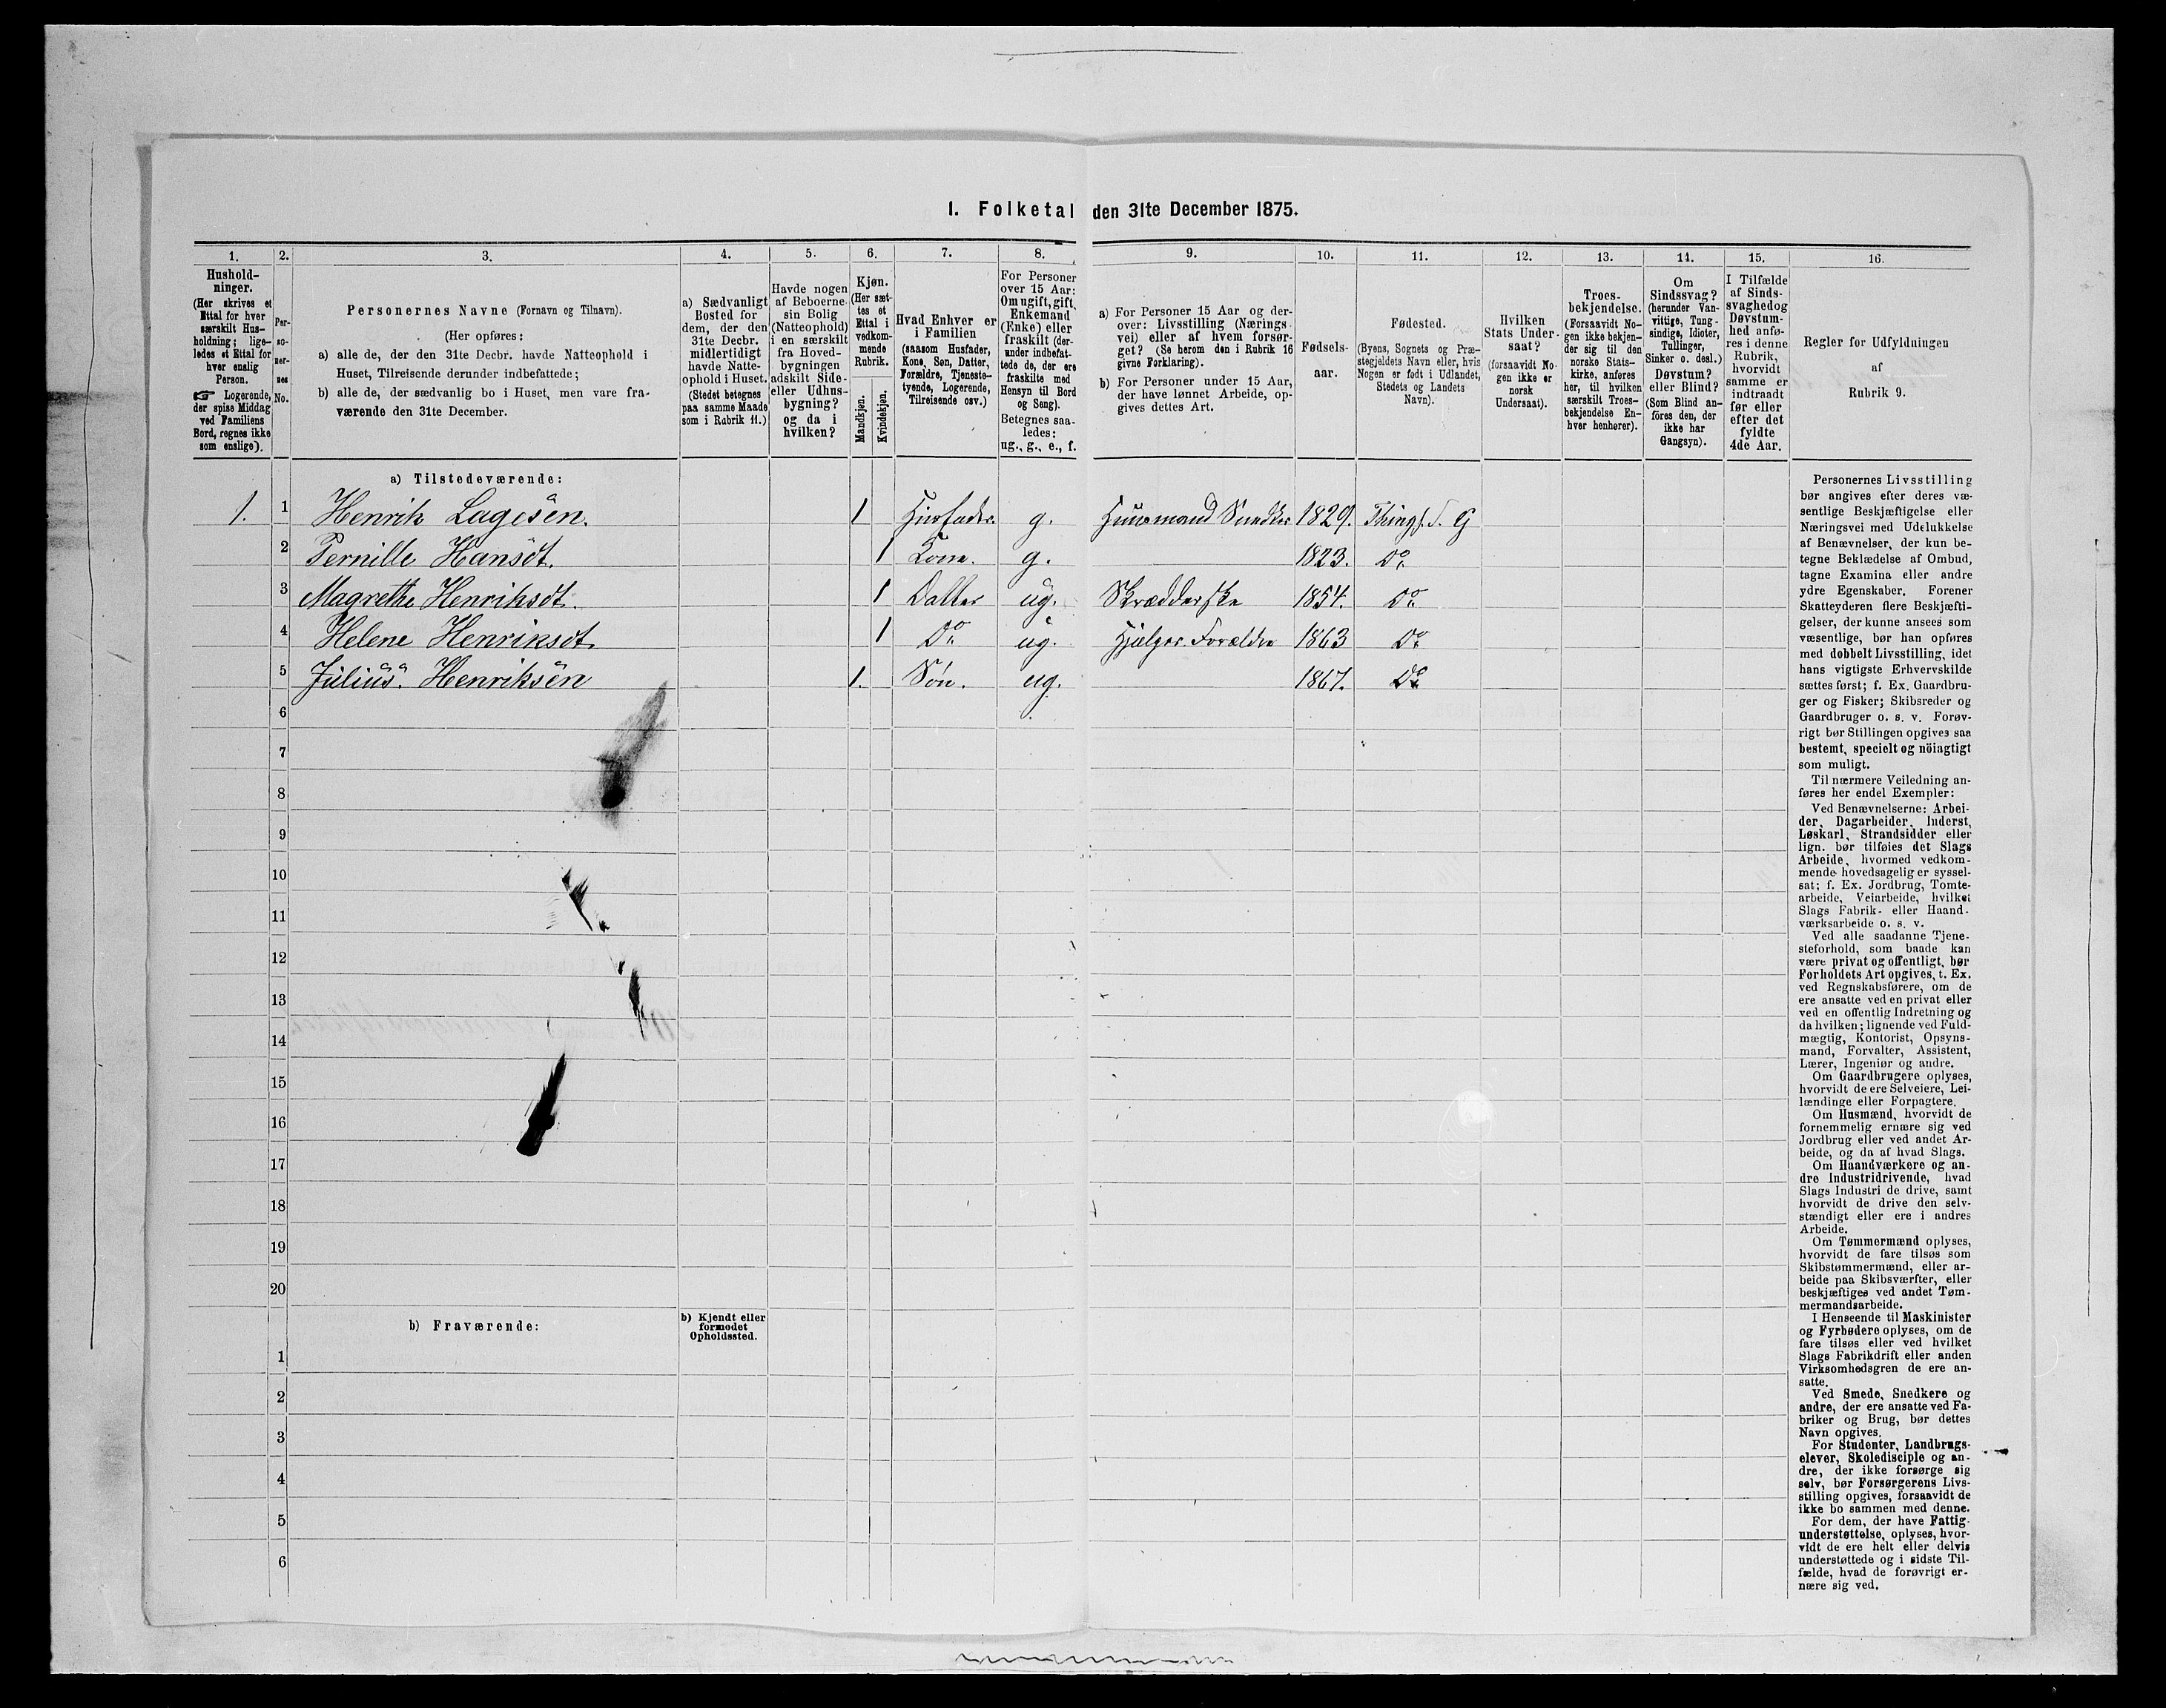 1. Folketal den 31te December 1875.
1.
Hushold-
ninger.
(Her skrives et
Ettal for hver
særskilt Hus-
holdning; lige-
ledes et Ettal for
hver enslig
Person.
Logerende,
der spise Middag
ved Familiens
Bord, regnes ikke
som enslige).
2.
Per-
so-
ner-
nes
No.
3.
Personernes Navne (Fornavn og Tilnavn).
(Her opføres:
a) alle de, der den 31te Decbr. havde Natteophold i
Huset, Tilreisende derunder indbefattede;
b) alle de, der sædvanlig bo i Huset, men vare fra-
værende den 31te December.
4.
a) Sædvanligt
Bosted for
dem, der den
31te Decbr.
midlertidigt
havde Natte-
ophold i Huset.
(Stedet betegnes
paa samme Maade
som i Rubrik 11.)
5.
Havde nogen
af Beboerne
sin Bolig
(Natteophold)
i en særskilt
fra Hoved-
bygningen
adskilt Side-
eller Udhus-
bygning?
og da i
hvilken?
6.
Kjøn.
(Her sæt-
tes et
Ettal i
vedkom-
mende
Rubrik.
Mandkjøn.
Kvindekjøn.
7.
Hvad Enhver er
i Familien
(saasom Husfader,
Kone, Søn, Datter,
Forældre, Tjeneste-
tyende, Logerende,
Tilreisende osv.)
8.
For Personer
over 15 Aar:
Om ugift, gift,
Enkemand
(Enke) eller
fraskilt (der-
under indbefat-
tede de, der ere
fraskilte med
Hensyn til Bord
og Seng).
Betegnes saa-
ledes:
ug., g., e., f.
9.
a) For Personer 15 Aar og der-
over: Livsstilling (Nærings-
vei) eller af hvem forsør-
get? (Se herom den i Rubrik 16
givne Forklaring).
b) For Personer under 15 Aar,
der have lønnet Arbeide, op-
gives dettes Art.
10.
Fødsels-
aar.
11.
Fødested.
(Byens, Sognets og Præ-
stegjeldets Navn eller, hvis
Nogen er født i Udlandet,
Stedets og Landets
Navn).
12.
Hvilken
Stats Under-
saat?
(forsaavidt No-
gen ikke er
norsk
Undersaat).
13.
Troes-
bekjendelse.
(Forsaavidt No-
gen ikke bekjen-
der sig til den
norske Stats-
kirke, anføres
her, til hvilken
særskilt Troes-
bekjendelse En-
hver henhører).
14.
Om
Sindssvag?
(herunder Van-
vittige, Tung-
sindige, Idioter,
Tullinger,
Sinker o. desl.)
Døvstum?
eller Blind?
(Som Blind an-
föres den, der
ikke har
Gangsyn).
15.
I Tilfælde
af Sinds-
svaghed og
Døvstum-
hed anfø-
res i denne
Rubrik,
hvorvidt
samme er
indtraadt
før eller
efter det
fyldte
4de Aar.
16.
Regler for Udfyldningen
af
Rubrik 9.
a) Tilstedeværende:
1. 1 Henrik Lagesen. 1 Husfader. g. Huusmand Snedker 1829. Thingl. S. G
2 Pernille Hansdt. 1 Kone. g. 1823. Do.
3 Magrethe Henriksdt. 1 Datter ug. Skrædderske 1854. Do.
4 Helene Henriksdt. 1 Do. ug. Hjelper Forældre 1863 Do.
5 Julius. Henriksen 1. Søn. ug. 1867. Do.
6
7
8
9
10
11
12
13
14
15
16
17
18
19
20
b) Fraværende:
b) Kjendt eller
formodet
Opholdssted.
1
2
3
4
5
6
Personernes Livsstilling
bør angives efter deres væ-
sentlige Beskjæftigelse eller
Næringsvei med Udelukkelse
af Benævnelser, der kun be-
tegne Beklædelse af Ombud,
tagne Examina eller andre
ydre Egenskaber. Forener
Skatteyderen flere Beskjæfti-
gelser, der kunne ansees som
væsentlige, bør han opføres
med dobbelt Livsstilling, idet
hans vigtigste Erhvervskilde
sættes først; f. Ex. Gaardbru-
ger og Fisker; Skibsreder og
Gaardbruger o. s. v. Forøv-
rigt bør Stillingen opgives saa
bestemt, specielt og nöiagtigt
som muligt.
Til nærmere Veiledning an-
føres her endel Exempler:
Ved Benævnelserne: Arbei-
der, Dagarbeider, Inderst,
Løskarl, Strandsidder eller
lign. bør tilføies det Slags
Arbeide, hvormed vedkom-
mende hovedsagelig er syssel-
sat; f. Ex. Jordbrug, Tomte-
arbeide, Veiarbeide, hvilket
Slags Fabrik- eller Haand-
værksarbeide o. s. v.
Ved alle saadanne Tjene-
steforhold, som baade kan
være privat og offentligt, bør
Forholdets Art opgives, t. Ex.
ved Regnskabsførere, om de
ere ansatte ved en privat eller
ved en offentlig Indretning og
da hvilken; lignende ved Fuld-
mægtig, Kontorist, Opsyns-
mand, Forvalter, Assistent,
Lærer, Ingeniør og andre.
Om Gaardbrugere oplyses,
hvorvidt de ere Selveiere, Lei-
lændinge eller Forpagtere.
Om Husmænd, hvorvidt de
fornemmelig ernære sig ved
Jordbrug eller ved andet Ar-
beide, og da af hvad Slags.
Om Haandværkere og an-
dre Industridrivende, hvad
Slags Industri de drive, samt
hvorvidt de drive den selv-
stændigt eller ere i andres
Arbeide.
Om Tømmermænd oplyses,
hvorvidt de fare tilsøs som
Skibstømmermænd, eller ar-
beide paa Skibsværfter, eller
beskjæftiges ved andet Tøm-
mermandsarbeide.
I Henseende til Maskinister
og Fyrbødere oplyses, om de
fare tilsøs eller ved hvilket
Slags Fabrikdrift eller anden
Virksomhedsgren de ere an-
satte.
Ved Smede, Snedkere og
andre, der ere ansatte ved Fa-
briker og Brug, bør dettes
Navn opgives.
For Studenter, Landbrugs-
elever, Skoledisciple og an-
dre, der ikke forsørge sig
selv, bør Forsørgerens Livs-
stilling opgives, forsaavidt de
ikke bo sammen med denne.
For dem, der have Fattig-
understøttelse, oplyses, hvor-
vidt de ere helt eller delvis
understøttede og i sidste Til-
fælde, hvad de forøvrigt er-
nære sig ved.